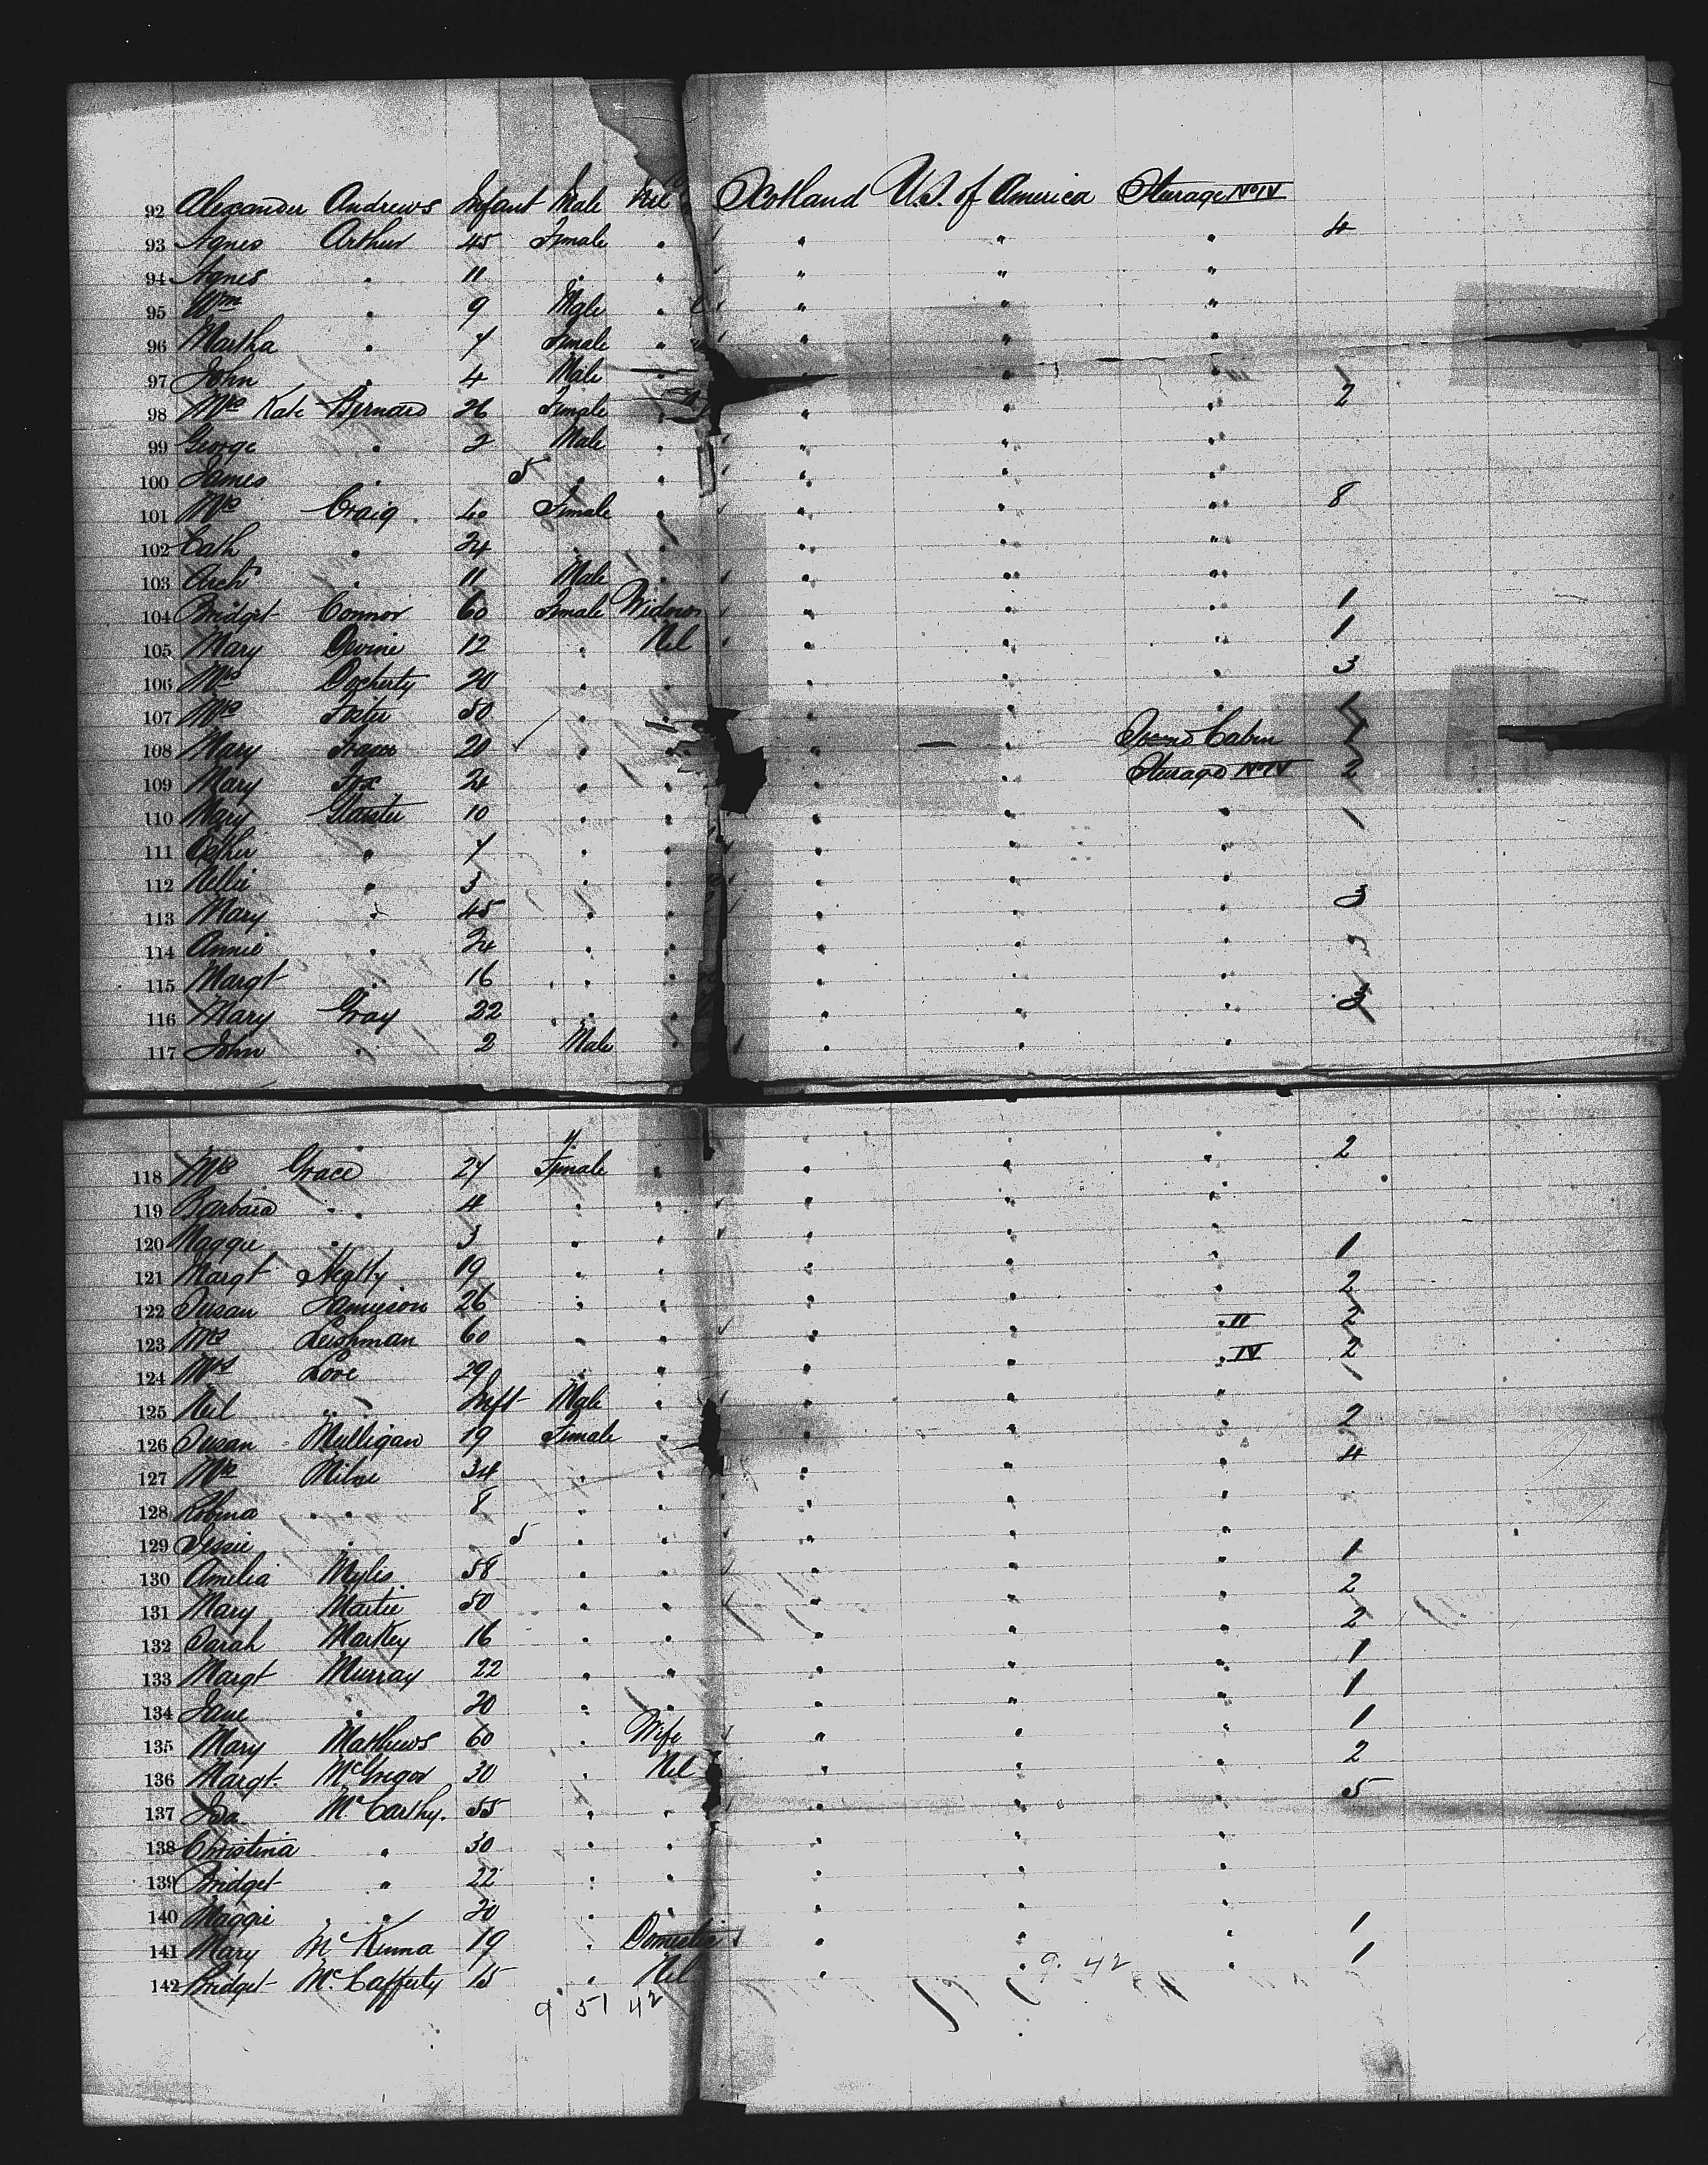 92 Alexander Andrews Infant Male Nil Scotland U.S. of America Sturage No IV
93 Agnes Arthur 45 Female " " " " 4
94 Agnes " 11 " " " " "
95 Wm " 9 Male " " " "
96 Martha " 7 Female " " " "
97 John " 4 Male " " " "
98 Mrs Kate Bernard 26 Female " " " " 2
99 George " 2 Male " " " "
100 James " 5 " " " " "
101 Mrs Craig 40 Female " " " " 8
102 Cath " 24 " " " " "
103 Archd " 11 Male " " " "
104 Bridget Connor 60 Female Widow " " " 1
105 Mary Devine 12 " Nil " " " 1
106 Mrs Docherty 20 " " " " " 3
107 Mrs Foster 50 " " " " " 1
108 Mary Fraser 20 " " " " Second Cabin 1
109 Mary Fox 24 " " " " Sturage No IV 2
110 Mary Glaister 10 " " " " " 1
111 Esther " 7 " " " " "
112 Nellie " 3 " " " " "
113 Mary " 45 " " " " " 3
114 Annie " 24 " " " " "
115 Margt " 16 " " " " "
116 Mary Gray 22 " " " " " 3
117 John " 2 Male " " " "
118 Mrs Grace 27 Female " " " " 2
119 Barbara " 4 " " " " "
120 Maggie " 3 " " " " "
121 Margt 19 " " " " " 1
122 Susan Jamieson 26 " " " " " 2
123 Mrs Leishman 60 " " " " " II 2
124 Mrs Love 29 " " " " " IV 2
125 Neil " Inft Male " " " "
126 Susan Mulligan 19 Female " " " " 2
127 Mrs Milne 34 " " " " " 4
128 Robina " 8 " " " " "
129 Jessie " 5 " " " " "
130 Amelia Myles 58 " " " " " 1
131 Mary Martin 50 " " " " " 2
132 Sarah Markey 16 " " " " " 2
133 Margt Murray 22 " " " " " 1
134 Jane " 20 " " " " " 1
135 Mary Mathews 60 " Wife " " " 1
136 Margt McGregor 30 " Nil " " " 2
137 McCarthy. 55 " " " " " 5
138 Christina " 30 " " " " "
139 Bridget " 22 " " " " "
140 Maggie " 20 " " " " "
141 Mary McKenna 19 " Domestic " " " 1
142 Bridget McCafferty 15 " Nil " " " 1
9 51 42 9. 42